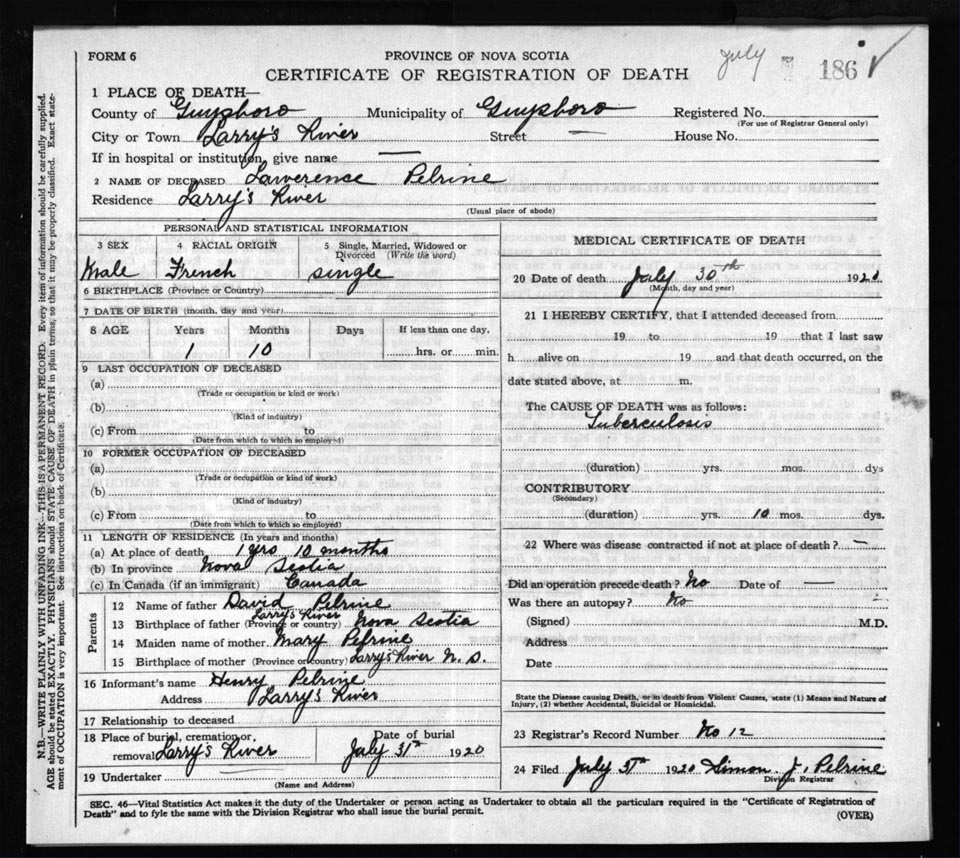 July 186 ✓
FORM 6 PROVINCE OF NOVA SCOTIA
CERTIFICATE OF REGISTRATION OF DEATH
1 PLACE OF DEATH—
County of Guysboro Municipality of Guysboro Registered No.
(For use of Registrar General only)
City or Town Larry's River Street — House No.
If in hospital or institution, give name —
2 NAME OF DECEASED Lawerence Pelrine
Residence Larry's River
(Usual place of abode)
PERSONAL AND STATISTICAL INFORMATION
3 SEX 4 RACIAL ORIGIN 5 Single, Married, Widowed or
Divorced (Write the word)
Male French single
6 BIRTHPLACE (Province or Country)
7 DATE OF BIRTH (month, day and year)
8 AGE Years Months Days If less than one day,
1 10 hrs. or min.
9 LAST OCCUPATION OF DECEASED
(a)
(Trade or occupation or kind or work)
(b)
(Kind of industry)
(c) From to
(Date from which to which so employed)
10 FORMER OCCUPATION OF DECEASED
(a)
(Trade or occupation or kind of work)
(b)
(Kind of industry)
(c) From to
(Date from which to which so employed)
11 LENGTH OF RESIDENCE (In years and months)
(a) At place of death 1 yrs 10 months
(b) In province Nova Scotia
(c) In Canada (if an immigrant) Canada
Parents
12 Name of father David Pelrine
Larry's River
13 Birthplace of father (Province or country) Nova Scotia
14 Maiden name of mother Mary Pelrine
15 Birthplace of mother (Province or country) Larry's River N. S.
16 Informant's name Henry Pelrine
Address Larry's River
17 Relationship to deceased
18 Place of burial, cremation, or Date of burial
removal Larry's River July 31st 1920
19 Undertaker
(Name and Address)
MEDICAL CERTIFICATE OF DEATH
20 Date of death July 30th 1920
(Month, day and year)
21 I HEREBY CERTIFY, that I attended deceased from
19 to 19 that I last saw
h alive on 19 and that death occurred, on the
date stated above, at m.
The CAUSE OF DEATH was as follows:
Tuberculosis
(duration) yrs. mos. dys
CONTRIBUTORY
(Secondary)
(duration) yrs. 10 mos. dys.
22 Where was disease contracted if not at place of death? —
Did an operation precede death? No Date of —
Was there an autopsy? No
(Signed) M.D.
Address
Date
State the Disease causing Death, or in death from Violent Causes, state (1) Means and Nature of
Injury, (2) whether Accidental, Suicidal or Homicidal.
23 Registrar's Record Number No 12
24 Filed July 31st 1920 Simon J. Pelrine
Division Registrar
SEC. 46—Vital Statistics Act makes it the duty of the Undertaker or person acting as Undertaker to obtain all the particulars required in the "Certificate of Registration of
Death" and to fyle the same with the Division Registrar who shall issue the burial permit.
(OVER)
N.B.—WRITE PLAINLY WITH UNFADING INK—THIS IS A PERMANENT RECORD. Every item of information should be carefully supplied.
AGE should be stated EXACTLY. PHYSICIANS should STATE CAUSE OF DEATH in plain terms, so that it may be properly classified. Exact state-
ment of OCCUPATION is very important. See instructions on back of Certificate.